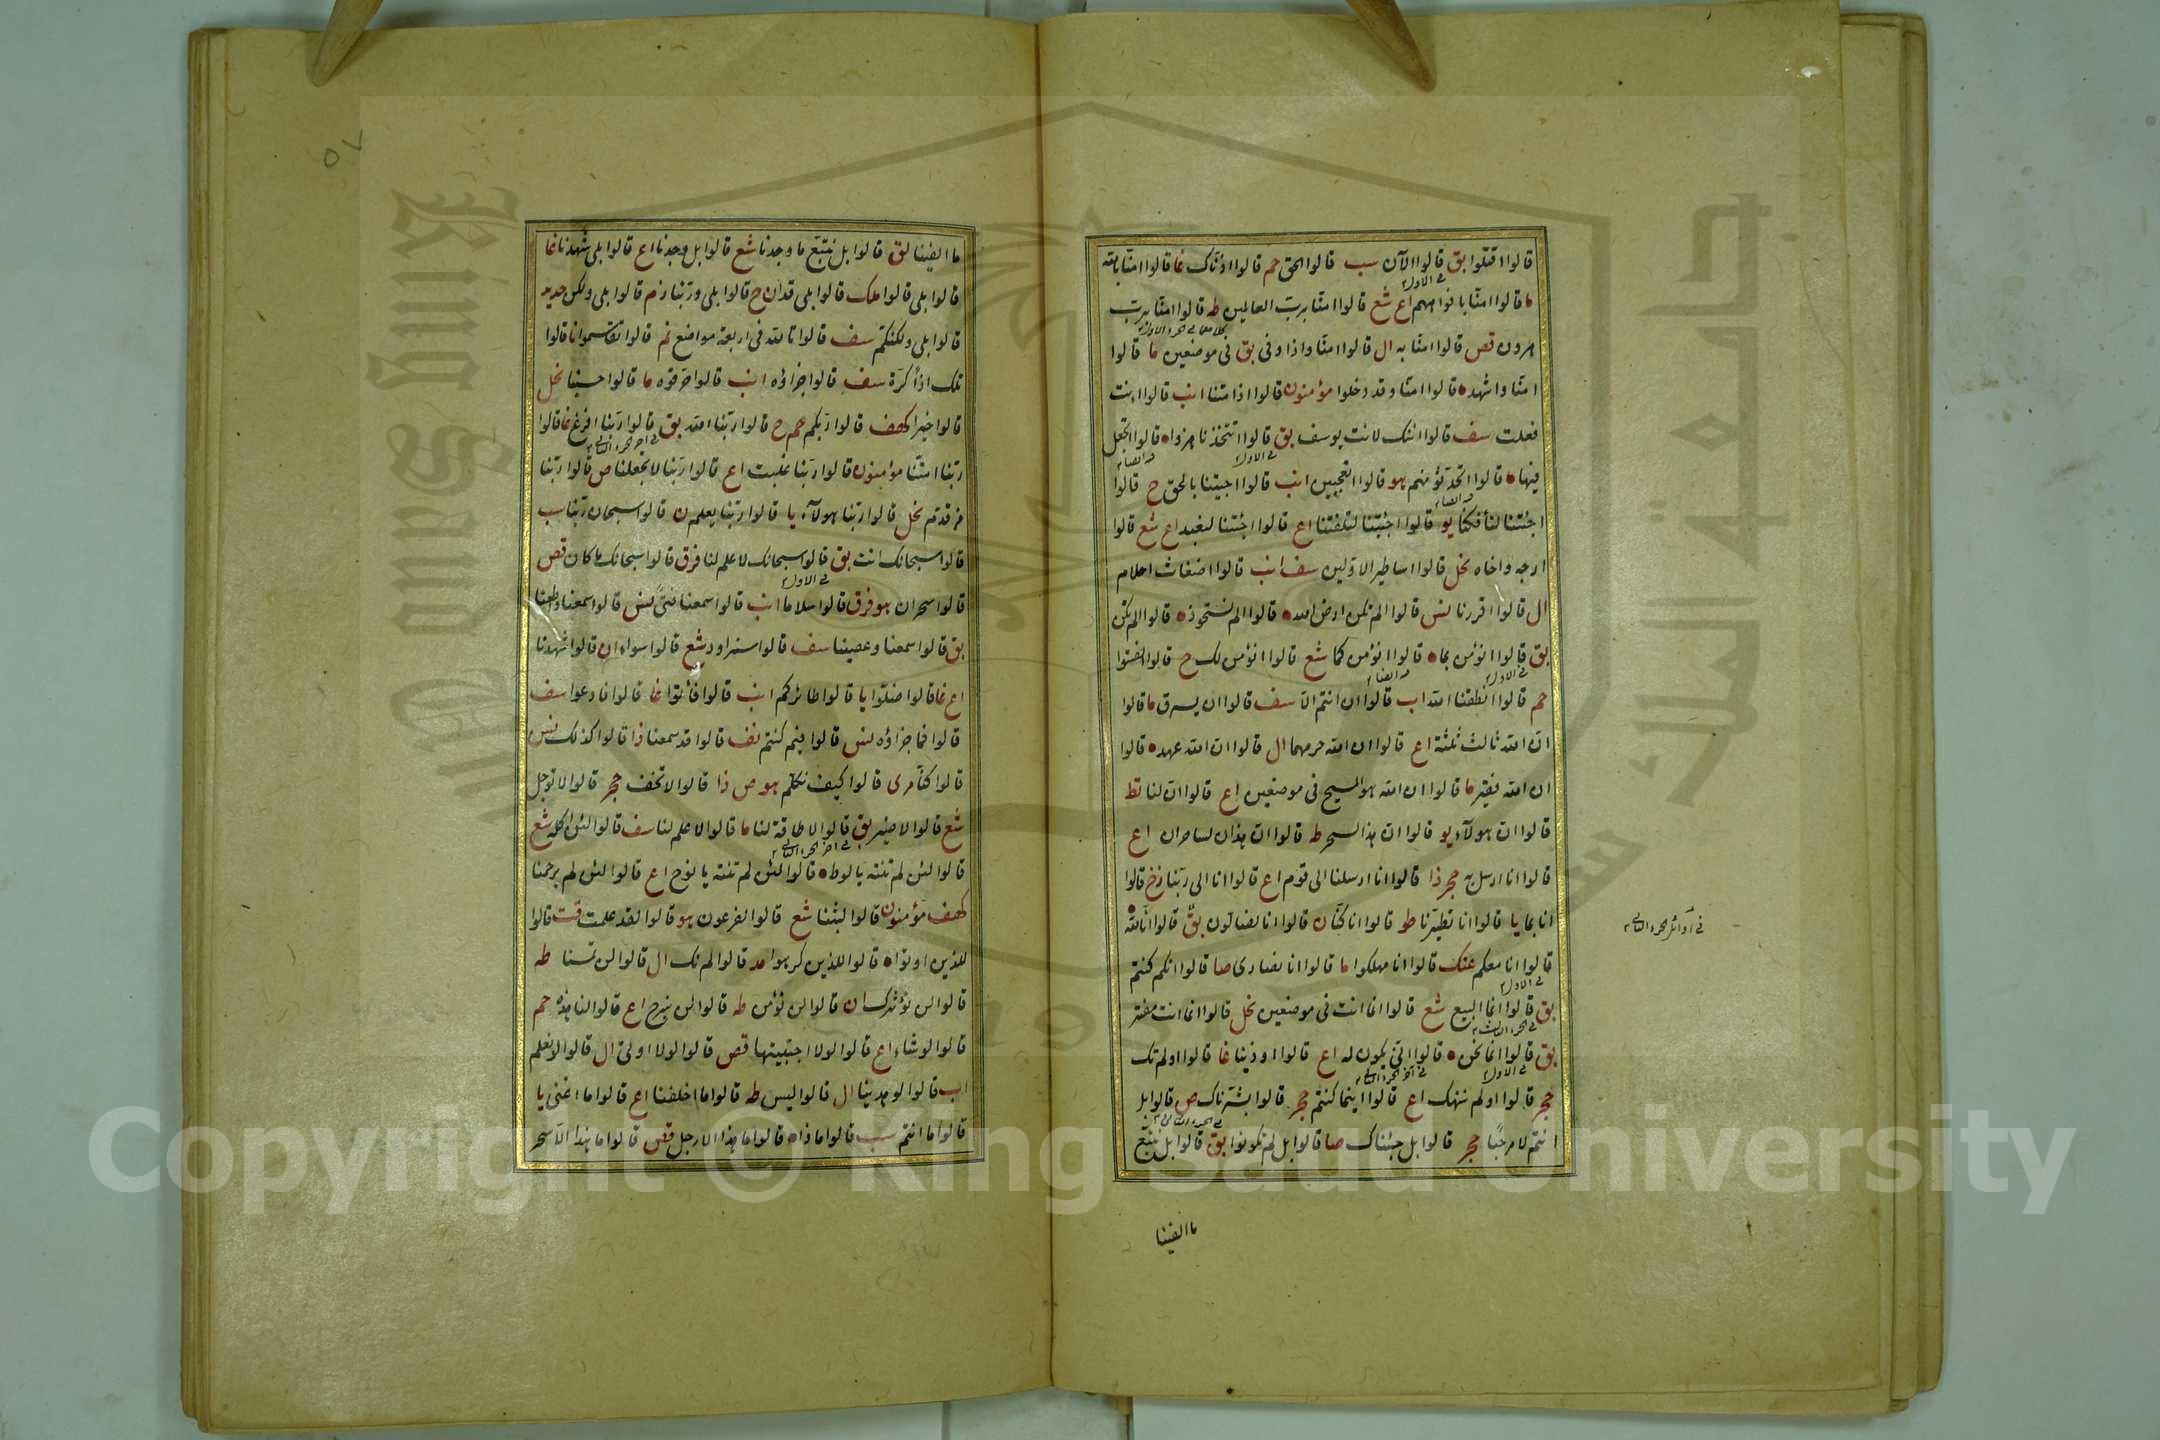 قالوا اقتلوا بق قالوا الآن سب قالوا الحق حم قالوا اذناك غا قالوا امنا بالله
ما قالوا امنا بافواههم اع شع قالوا امنا برب العالمين طه قالوا امنا برب
هرون قص قالوا امنا به ال قالوا امنا واذا وفى بق فى موضعين ما قالوا
امنا واشهد قالوا امنا وقد دخلوا مؤمنون قالوا اذا متنا انب قالوا انت
فعلت سف قالوا انك لانت يوسف بق قالوا اتتخذنا هزوا قالوا اتجعل
فيها قالوا اتحدثونهم هو قالوا اتعجبين انب قالوا اجئتنا بالحق ح قالوا
اجئتنا لتأفكنا يو قالوا اجئتنا لتلفتنا اع قالوا اجئتنا لنعبد اع شع قالوا
ارجه واخاه نحل قالوا اساطير الاولين سف انب قالوا اضغاث احلام
ال قالوا اقررنا نس قالوا الم تكن ارض الله قالوا الم نستحوذ قالوا الم نكن
بق قالوا انؤمن بما قالوا انؤمن كما شع قالوا انؤمن لك ح قالوا انصتوا
حم قالوا انطقنا الله اب قالوا ان انتم الا سف قالوا ان يسرق ما قالوا
ان الله ثالث ثلثة اع قالوا ان الله حرمهما ال قالوا ان الله عهد قالوا
ان الله فقير ما قالوا ان الله هو المسيح فى موضعين اع قالوا ان لنا تط
قالوا ان هولآء يو قالوا ان هذا لسحر طه قالوا ان هذان لساحران اع
قالوا انا ارسل به حجر ذا قالوا انا ارسلنا الى قوم اع قالوا انا الى ربنا زخ قالوا
انا بما يا قالوا انا تطيرنا طو قالوا انا كنا ن قالوا انا لضالون بق قالوا انا لله
قالوا انا معكم عنك قالوا انا مهلكوا ما قالوا انا نصارى صا قالوا انكم كنتم
بق قالوا انما البيع شع قالوا انما انت فى موضعين نحل قالوا انما انت مفتر
بق قالوا انما نحن قالوا انى يكون له اع قالوا اوذينا غا قالوا اولم تك
حجر قالوا اولم ننهك اع قالوا اينما كنتم حجر قالوا بشرناك ص قالوا بل
انتم لا مرحبا حجر قالوا بل جئناك صا قالوا بل لم تكونوا بق قالوا بل نتبع
ما الفينا
ما الفينا لق قالوا بل نتبع ما وجدنا شع قالوا بل وجدنا اع قالوا بلى شهدنا غا
قالوا بلى قالوا ملك قالوا بلى قد ان ح قالوا بلى وربنا زم قالوا بلى ولكن حديد
قالوا بلى ولكنكم سف قالوا تالله فى اربعة مواضع نم قالوا تقاسموا نا قالوا
تلك اذا كرة سف قالوا جزاؤه انب قالوا حرقوه ما قالوا حسبنا نحل
قالوا خيرا كهف قالوا ربكم حم ح قالوا ربنا الله بق قالوا ربنا افرغ غا قالوا
ربنا امتنا مؤمنون قالوا ربنا غلبت اع قالوا ربنا لا تجعلنا ص قالوا ربنا
من قدم نحل قالوا ربنا هولآء يا قالوا ربنا يعلم ن قالوا سبحان ربنا سب
قالوا سبحانك انت بق قالوا سبحانك لا علم لنا فرق قالوا سبحانك ما كان قص
قالوا سحران هو فرق قالوا سلاما انب قالوا سمعنا فتى نس قالوا سمعنا واطعنا
بق قالوا سمعنا وعصينا سف قالوا سنراود شع قالوا سواء ان قالوا شهدنا
اع غا قالوا ضلوا يا قالوا طائركم انب قالوا فأتوا غا قالوا فادعوا سف
قالوا فما جزاؤه نس قالوا فيم كنتم نف قالوا قد سمعنا ذا قالوا كذلك نس
قالوا كنا مرى قالوا كيف نكلم هو ص ذا قالوا لا تخف حجر قالوا لا توجل
شع قالوا لا ضير بق قالوا لا طاقة لنا ما قالوا لا علم لنا سف قالوا لئن اكله شع
قالوا لئن لم تنته يا لوط قالوا لئن لم تنته يا نوح اع قالوا لئن لم يرحمنا
كهف مؤمنون قالوا لبثنا شع قالوا لفرعون هو قالوا لقد علمت قت قالوا
للذين اوتوا قالوا للذين كرهوا مد قالوا لم نك ال قالوا لن تمسنا طه
قالوا لن نؤثرك ان قالوا لن نؤمن طه قالوا لن نبرح اع قالوا لنا هذه حم
قالوا لو شاء اع قالوا لولا اجتبيتها قص قالوا لولا اوتى ال قالوا لو نعلم
اب قالوا لو هدينا ال قالوا ليس طه قالوا ما اخلفنا اع قالوا ما اغنى يا
قالوا ما انتم سب قالوا ماذا قالوا ما هذا الا رجل قص قالوا ما هذا الا سحر
Copyright © King Saud University